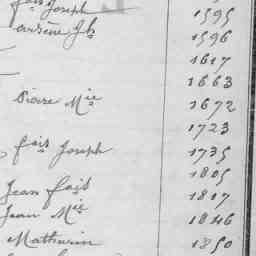 fois Joseph 1595
arsène Jh 1596
1617
1663
Pierre Mie 1672
1723
fois Joseph 1735
1805
Jean fois 1817
Jean Mie 1846
Mathurin 1850